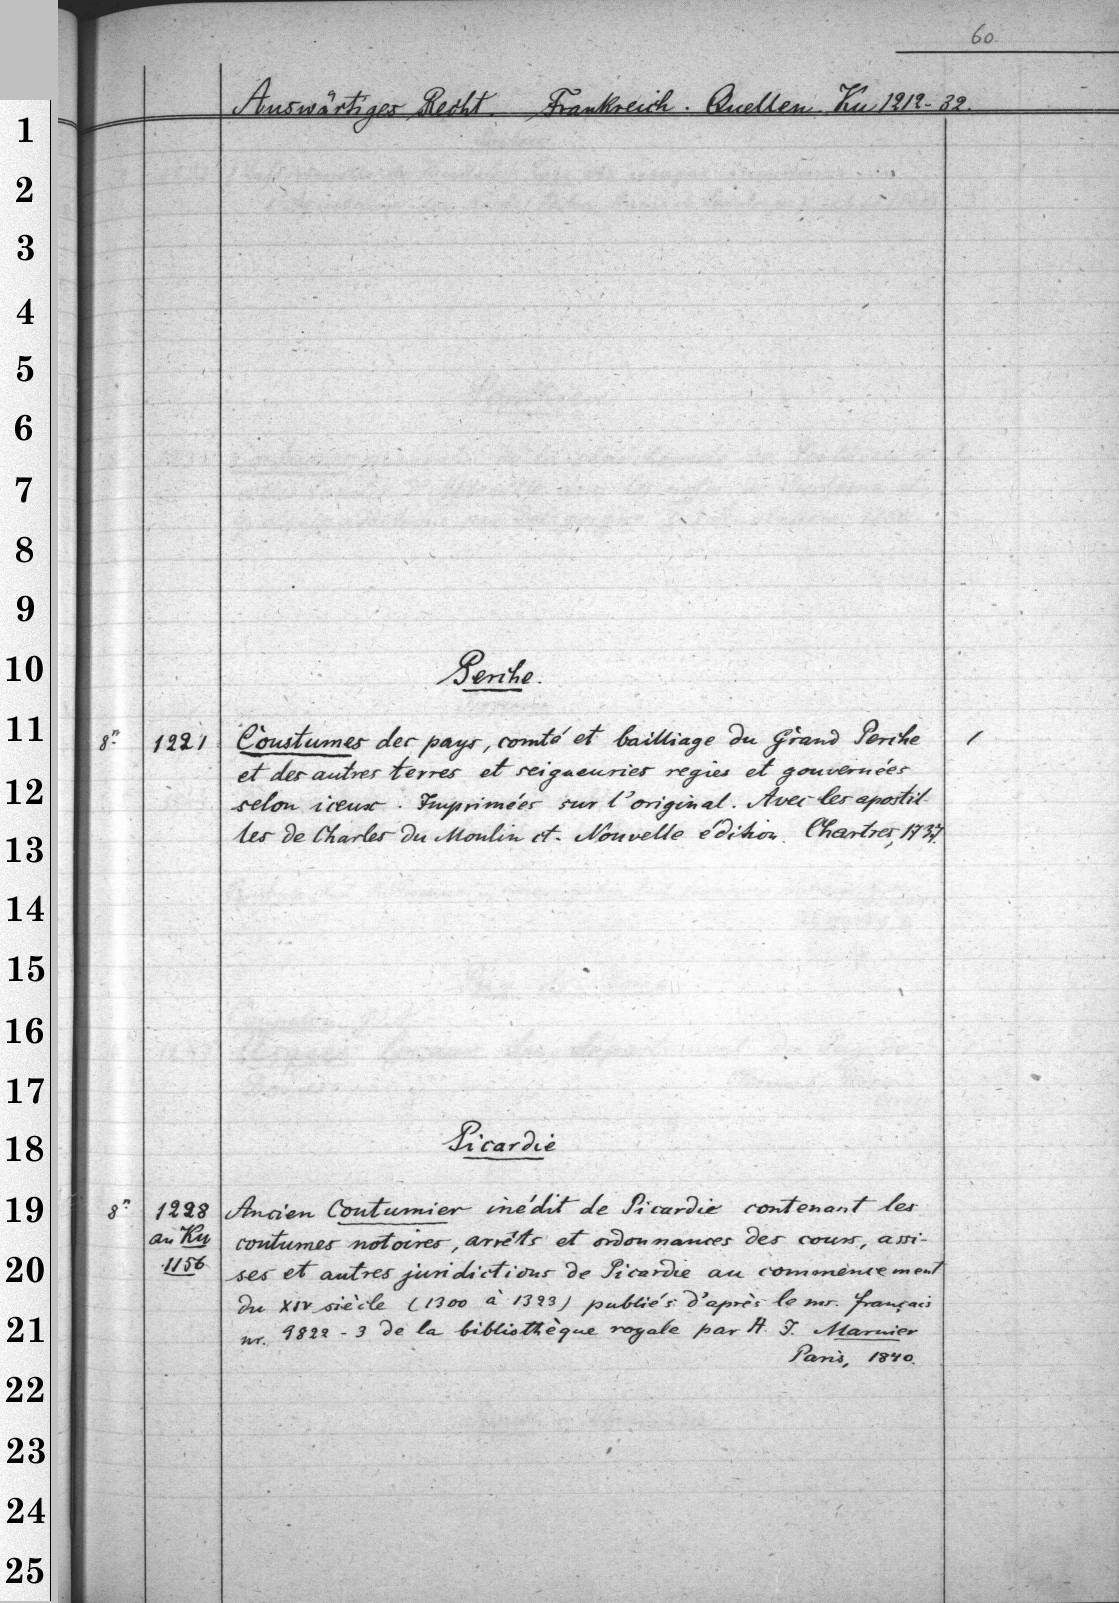 60.
Auswärtiges Recht. Frankreich. Quellen. Ku 1212-32.
1
2
3
4
5
6
7
8
9
10
Perche.
11
8º 1221 Coustumes des pays, comté et bailliage du Grand Perche 1
et des autres terres et seigneuries regies et gouvernées
12
selon iceux. Imprimées sur l'original. Avec les apostil-
13
les de Charles du Moulin et. Nouvelle édition. Chartres, 1737.
14
15
16
17
18
Picardie
19
8º 1228 Ancien Coutumier inédit de Picardie contenant les
an Ku coutumes notoires, arrêts et ordonnances des cours, assi-
20
1156 ses et autres juridictions de Picardie au commencement
du XIV siècle (1300 à 1323) publiés d'après le ms. français
21
nr. 9822-3 de la bibliothèque royale par A. J. Marnier
Paris, 1840.
22
23
24
25